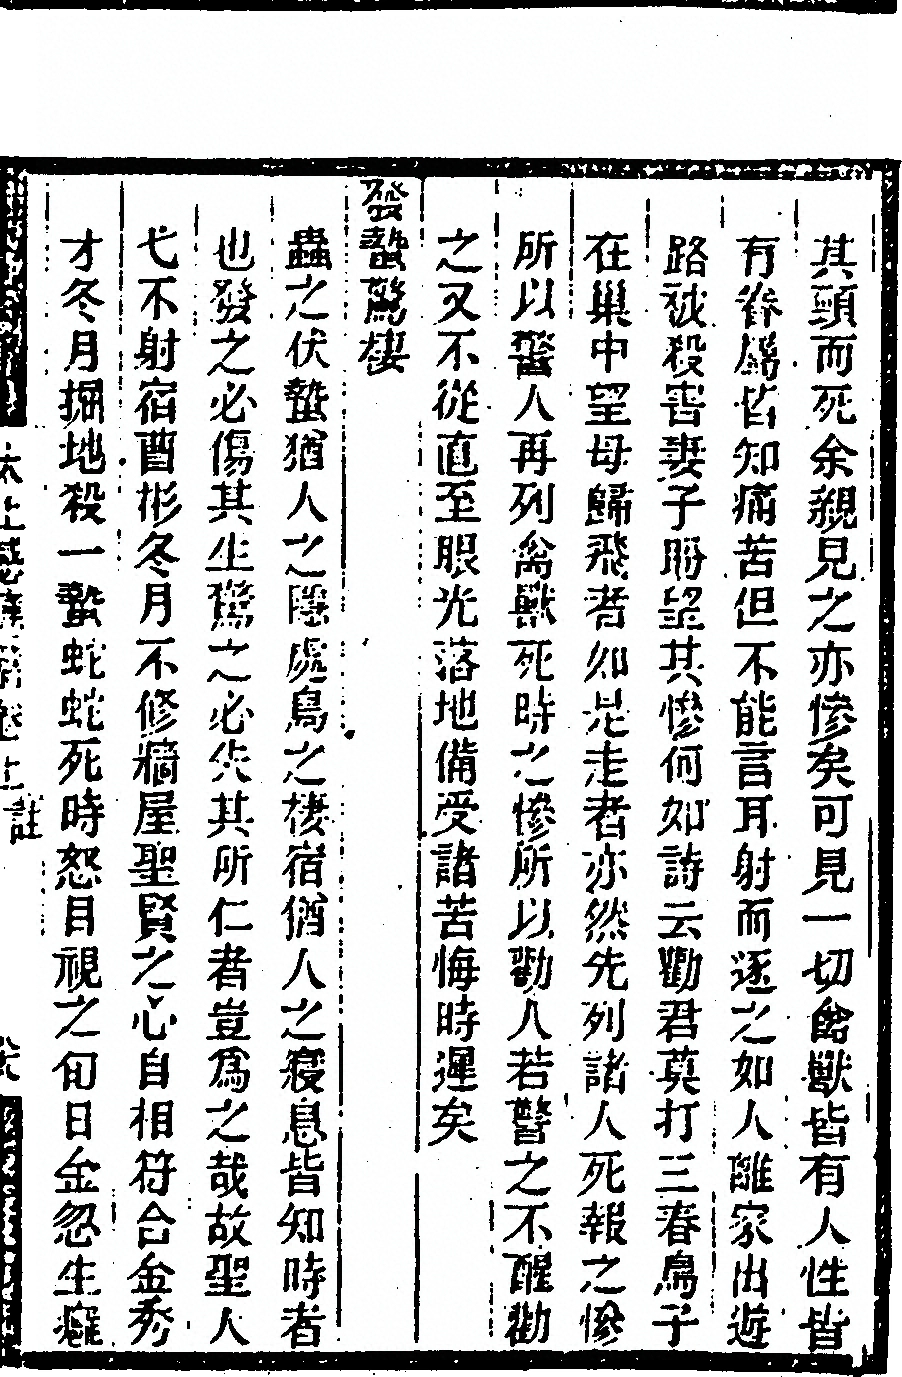 其頸而死余親見之亦慘矣可見一切禽獸皆有人性皆
有眷屬皆知痛苦但不能言耳射而逐之如人離家出遊
路被殺害妻子盼望其慘何如詩云勸君莫打三春鳥子
在巢中望母歸飛者如是走者亦然先列諸人死報之慘
所以警人再列禽獸死時之慘所以勸人若警之不醒勸
之又不從直至眼光落地備受諸苦悔時遲矣
發蟄驚棲
蟲之伏蟄猶人之隱處鳥之棲宿猶人之寢息皆知時者
也發之必傷其生驚之必失其所仁者豈為之哉故聖人
弋不射宿曹彬冬月不修牆屋聖賢之心自相符合金秀
才冬月掘地殺一蟄蛇蛇死時怒目視之旬日金忽生癰
太上感應篇 卷上 註